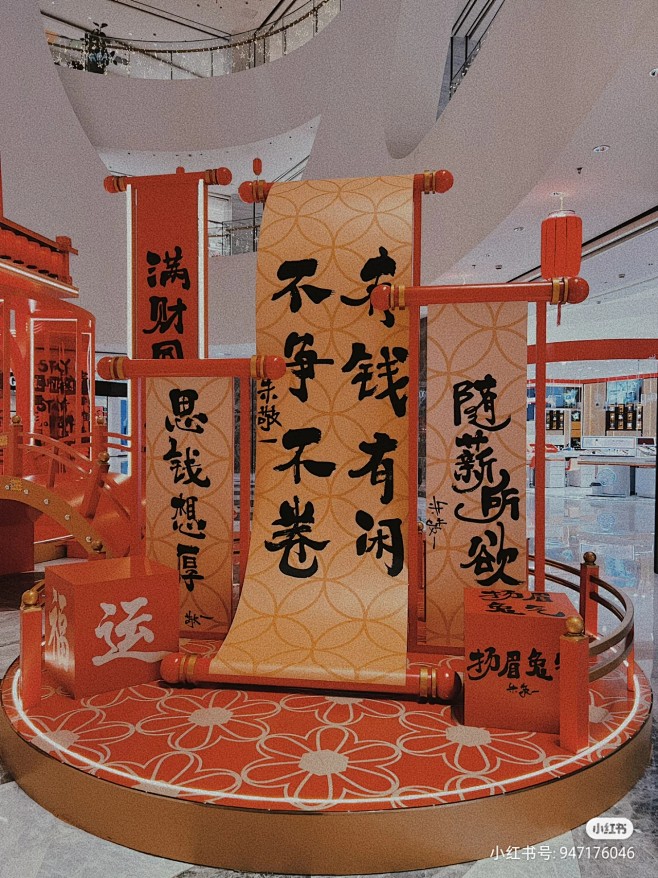 满财
有钱有闲
不争不卷
朱敬一
思钱想厚
敬一
随薪所欲
朱敬一
福
运
扬眉兔气
扬眉兔
朱敬一
STAY
STAY
小红书
小红书号: 947176046